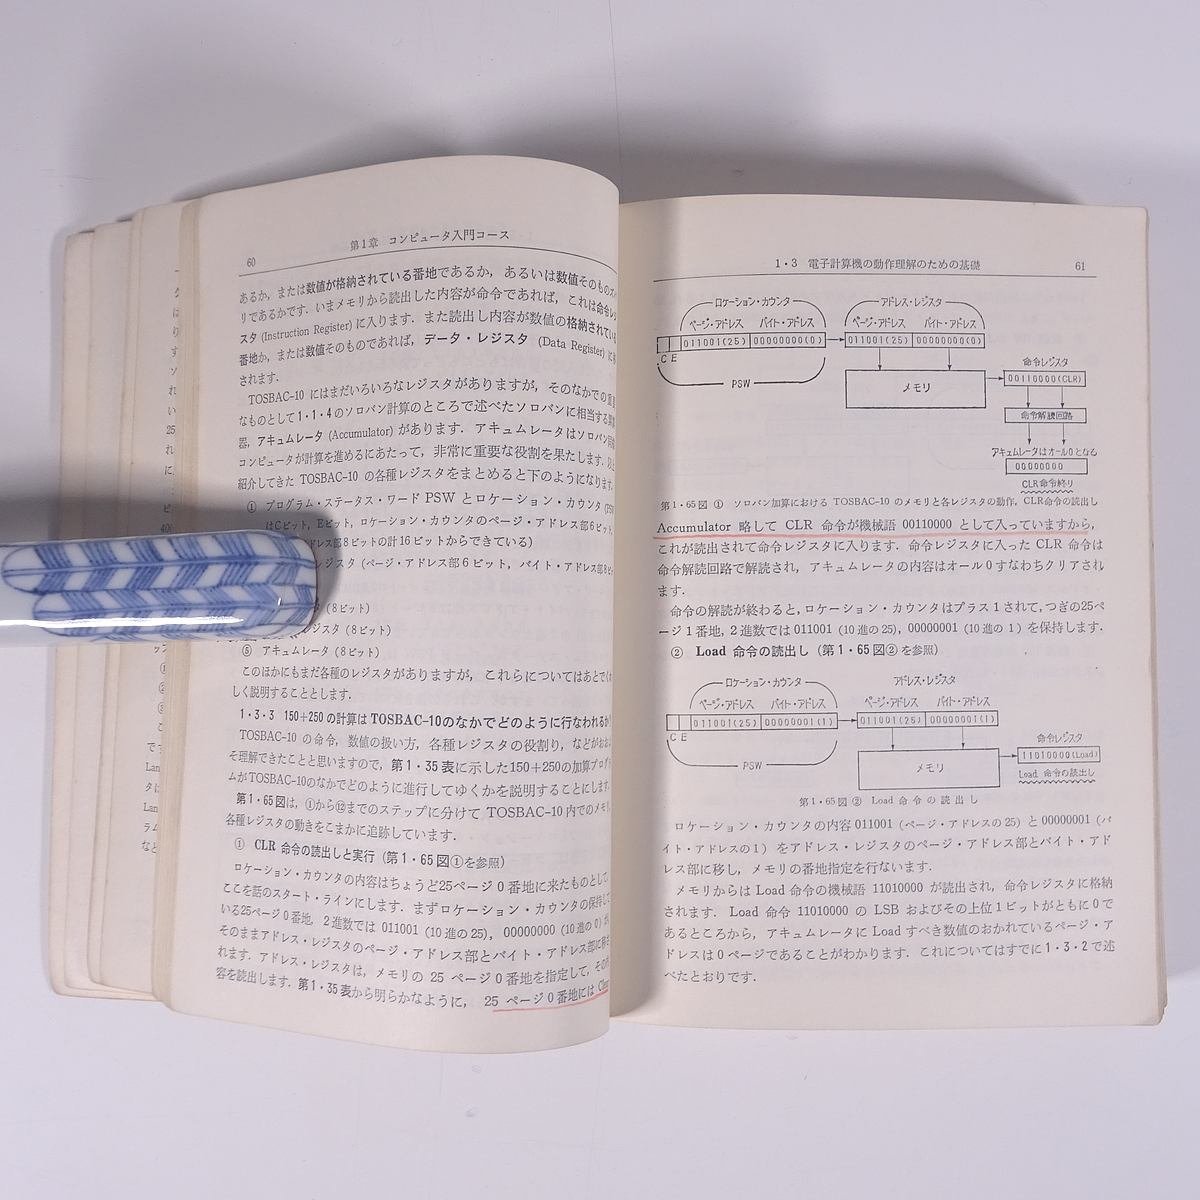 60
第1章 コンピュータ入門コース
あるか，または数値が格納されている番地であるか，あるいは数値そのもの
リであるかです．いまメモリから読出した内容が命令であれば，これは命令レジ
スタ (Instruction Register) に入ります．また読出し内容が数値の格納されてい
番地か，または数値そのものであれば，データ・レジスタ (Data Register) に
されます．
TOSBAC-10 にはまだいろいろなレジスタがありますが，そのなかでの重
なものとして1・1・4のソロバン計算のところで述べたソロバンに相当する
器，アキュムレータ (Accumulator) があります．アキュムレータはソロバン
コンピュータが計算を進めるにあたって，非常に重要な役割を果たします．
紹介してきた TOSBAC-10 の各種レジスタをまとめると下のようになります．
① プログラム・ステータス・ワード PSW とロケーション・カウンタ (PSW
はCビット，Eビット，ロケーション・カウンタのページ・アドレス部6ビット，
ドレス部8ビットの計16ビットからできている)
レジスタ (ページ・アドレス部6ビット，バイト・アドレス部8ビ
(8ビット)
レジスタ (8ビット)
⑤ アキュムレータ (8ビット)
このほかにもまだ各種のレジスタがありますが，これらについてはあとでく
しく説明することとします．
1・3・3 150+250の計算は TOSBAC-10のなかでどのように行なわれるか
TOSBAC-10 の命令，数値の扱い方，各種レジスタの役割り，などがおお
そ理解できたことと思いますので，第1・35表に示した150+250の加算プログ
ムがTOSBAC-10のなかでどのように進行してゆくかを説明することにします．
第1・65図は，①から⑫までのステップに分けて TOSBAC-10 内でのメモリ，
各種レジスタの動きをこまかに追跡しています．
① CLR 命令の読出しと実行 (第1・65図①を参照)
ロケーション・カウンタの内容はちょうど25ページ0番地に来たものとして，
ここを話のスタート・ラインにします．まずロケーション・カウンタの保持して
いる25ページ0番地，2進数では 011001 (10進の25)，00000000 (10進の0) が，
そのままアドレス・レジスタのページ・アドレス部とバイト・アドレス部に移さ
れます．アドレス・レジスタは，メモリの 25 ページ0番地を指定して，その
容を読出します．第1・35表から明らかなように， 25 ページ0番地には Clear
1・3 電子計算機の動作理解のための基礎
61
ロケーション・カウンタ
アドレス・レジスタ
ページ・アドレス バイト・アドレス
ページ・アドレス バイト・アドレス
011001(25) 00000000(0)
011001(25) 00000000(0)
C E
PSW
メモリ
命令レジスタ
00110000(CLR)
命令解読回路
アキュムレータはオール0となる
00000000
CLR命令終り
第1・65図 ① ソロバン加算における TOSBAC-10 のメモリと各レジスタの動作，CLR命令の読出し
Accumulator 略して CLR 命令が機械語 00110000 として入っていますから，
これが読出されて命令レジスタに入ります．命令レジスタに入った CLR 命令は
命令解読回路で解読され，アキュムレータの内容はオール0すなわちクリアされ
ます．
命令の解読が終わると，ロケーション・カウンタはプラス1されて，つぎの25ペ
ージ1番地，2進数では 011001 (10進の25)，00000001 (10進の1) を保持します．
② Load 命令の読出し (第1・65図②を参照)
ロケーション・カウンタ
アドレス・レジスタ
ページ・アドレス バイト・アドレス
ページ・アドレス バイト・アドレス
011001(25) 00000001(1)
011001(25) 00000001(1)
C E
PSW
メモリ
命令レジスタ
11010000(Load)
Load 命令の読出し
第1・65図 ② Load 命令の読出し
ロケーション・カウンタの内容 011001 (ページ・アドレスの25) と 00000001 (バ
イト・アドレスの1) をアドレス・レジスタのページ・アドレス部とバイト・アド
レス部に移し，メモリの番地指定を行ないます．
メモリからは Load 命令の機械語 11010000 が読出され，命令レジスタに格納
されます． Load 命令 11010000 の LSB およびその上位1ビットがともに0で
あるところから，アキュムレータに Load すべき数値のおかれているページ・ア
ドレスは0ページであることがわかります．これについてはすでに1・3・2で述
べたとおりです．